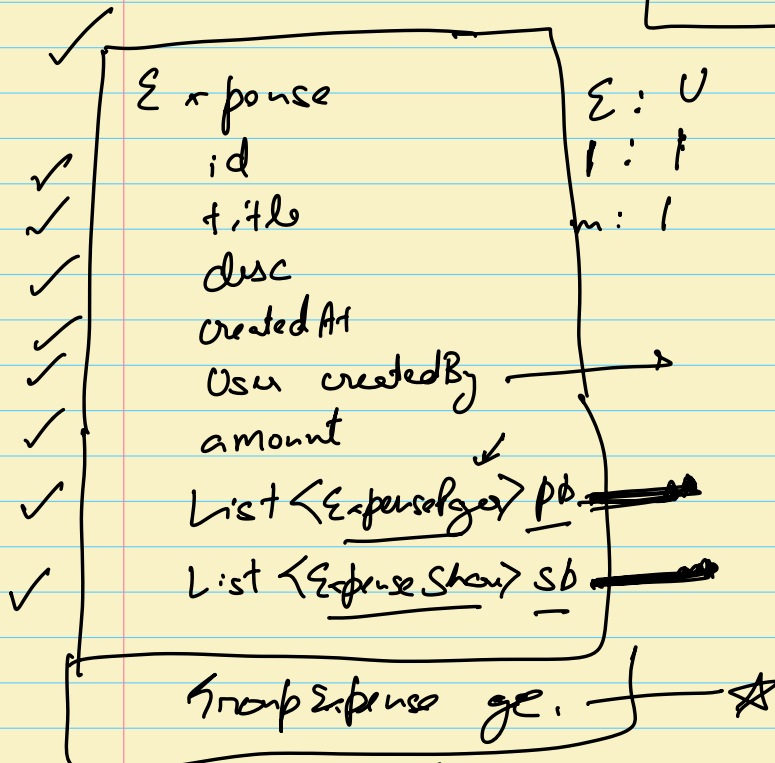 Expense E : U
id 1 : 1
title m : 1
desc
createdAt
User createdBy
amount
List <ExpensePayer> pb
List <ExpenseShare> sb
GroupExpense ge.